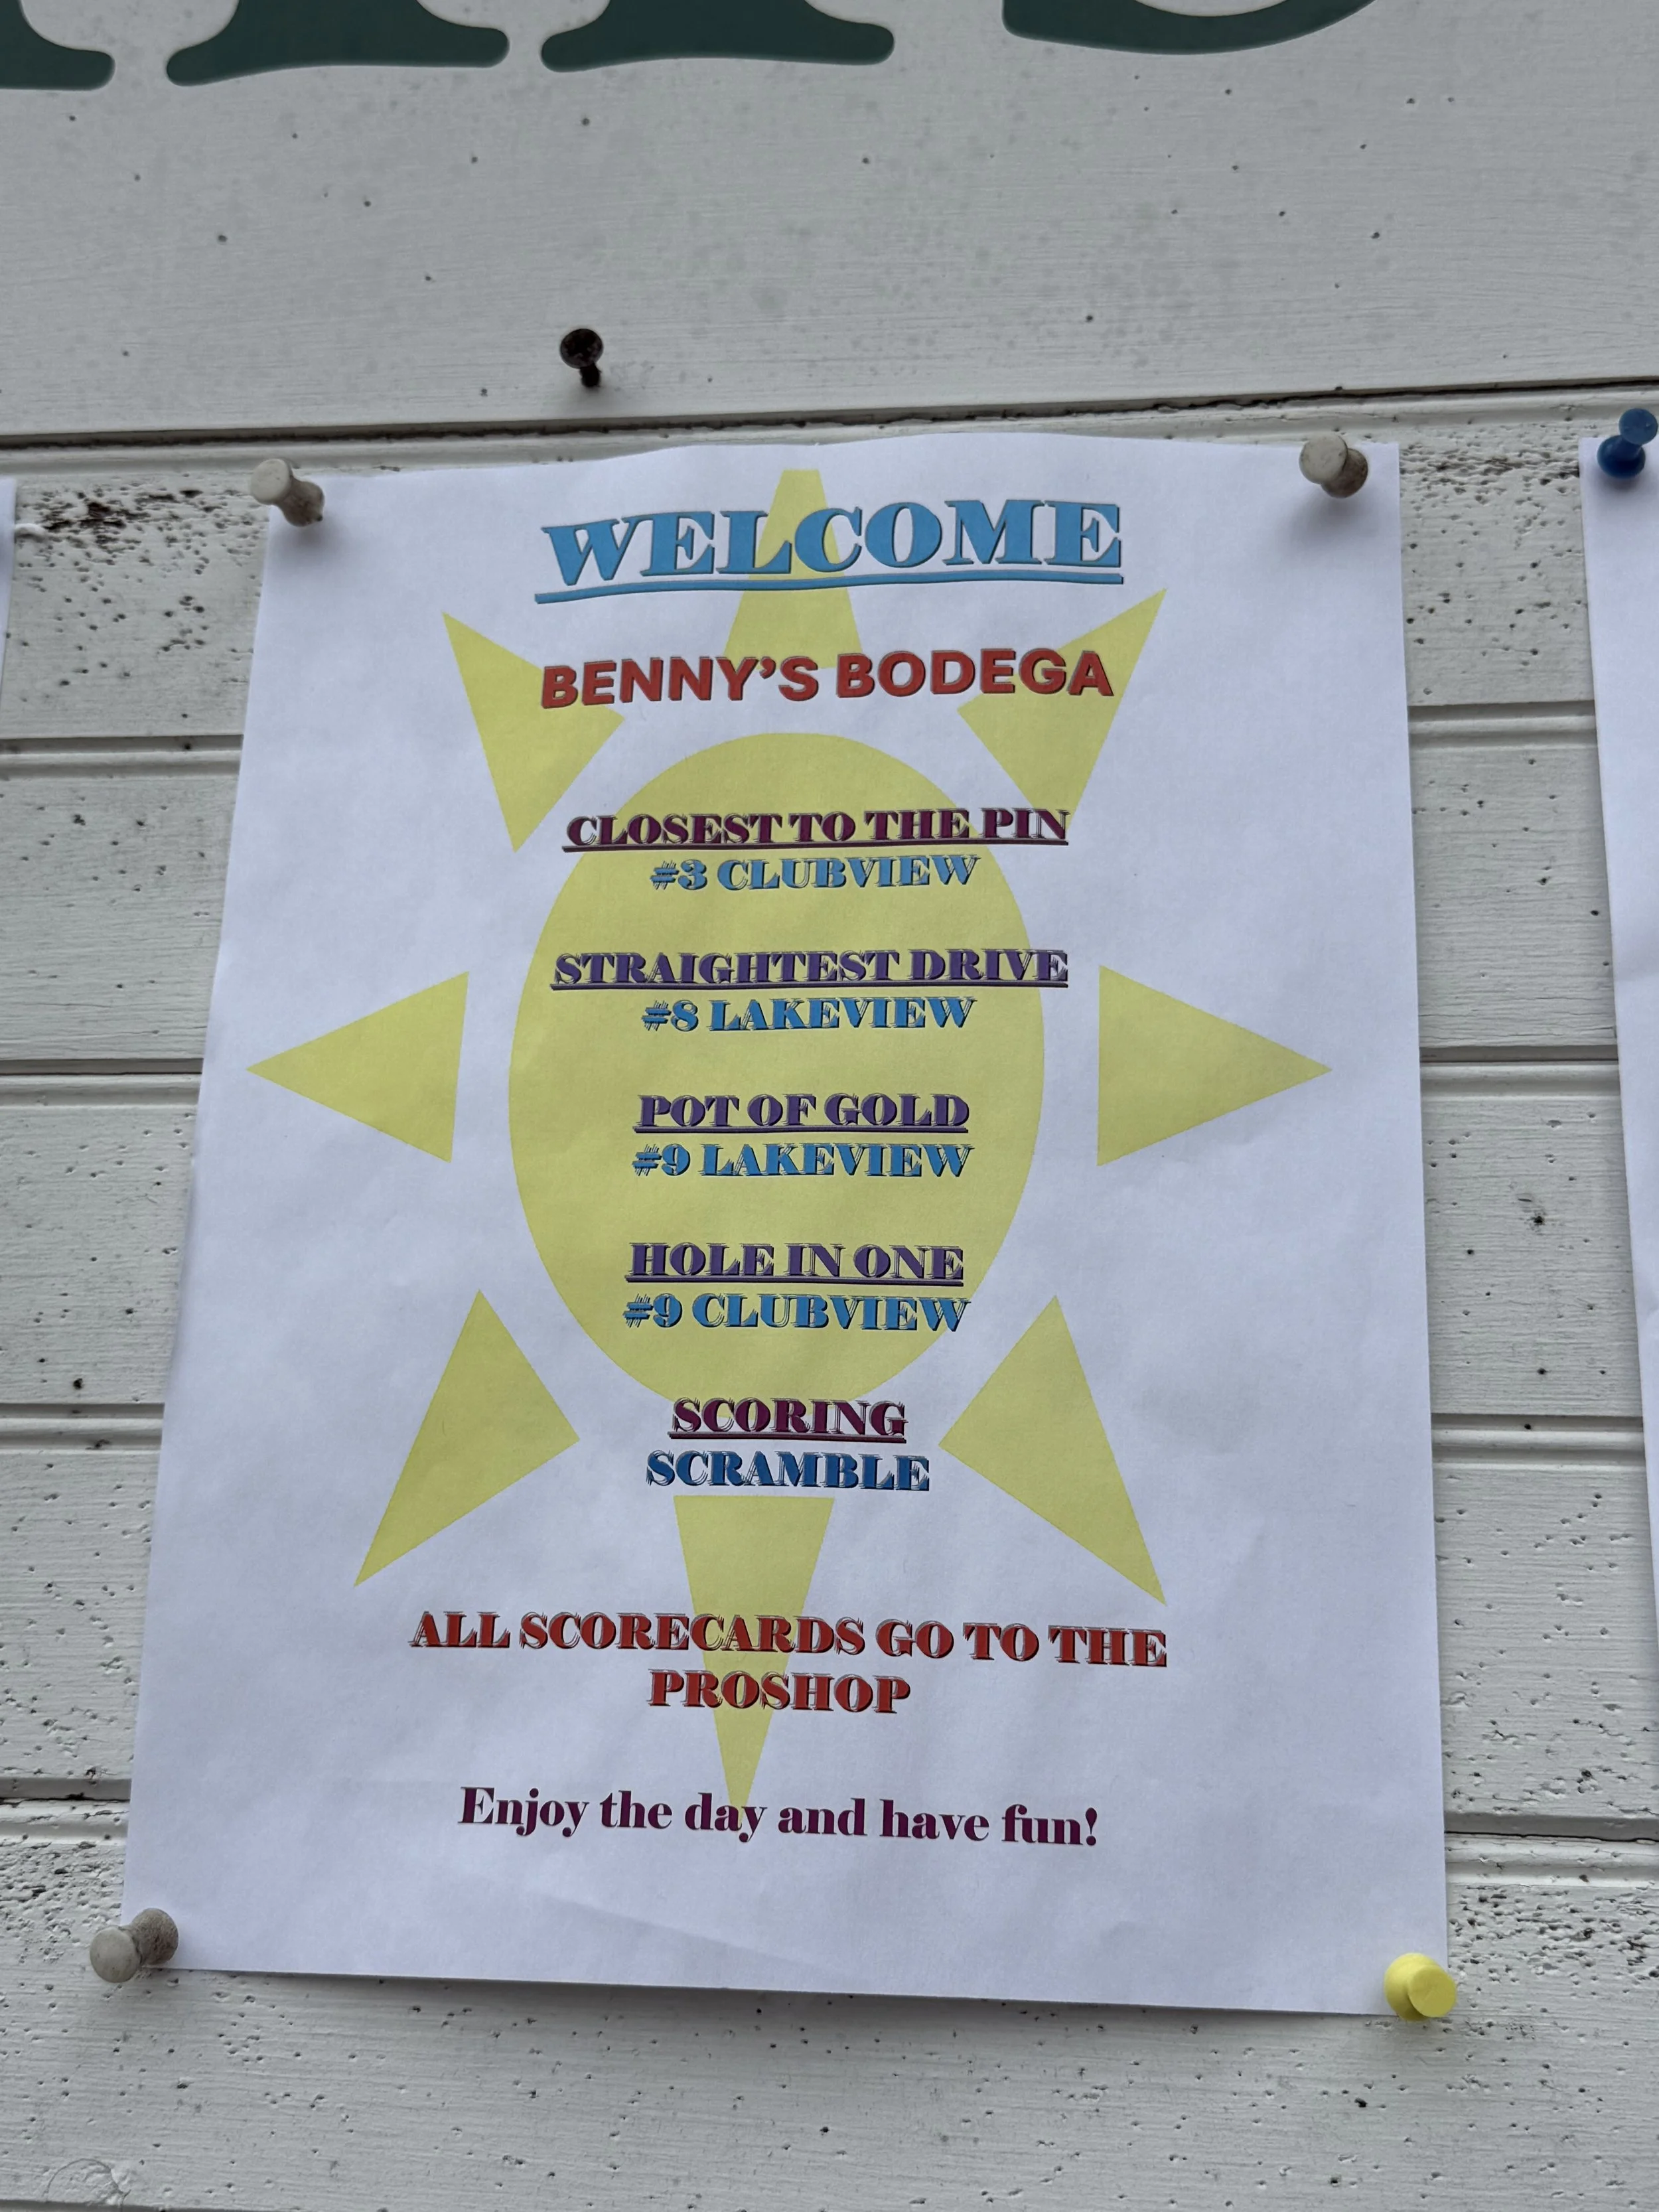 WELCOME
BENNY'S BODEGA
CLOSEST TO THE PIN
#3 CLUBVIEW
STRAIGHTEST DRIVE
#8 LAKEVIEW
POT OF GOLD
#9 LAKEVIEW
HOLE IN ONE
#9 CLUBVIEW
SCORING
SCRAMBLE
ALL SCORECARDS GO TO THE
PROSHOP
Enjoy the day and have fun!